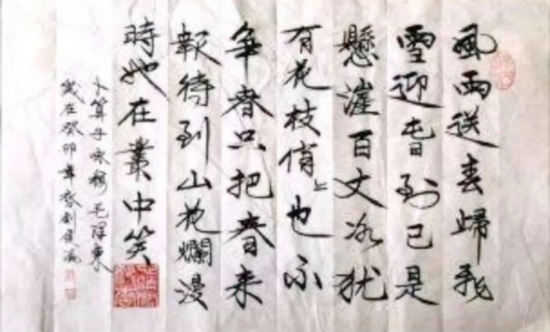 風雨送春歸飛
雪迎春到已是
懸崖百丈冰犹
有花枝俏〻也不
争春只把春来
報待到山花爛漫
時她在叢中笑
卜算子咏梅毛澤東
歲在癸卯年春